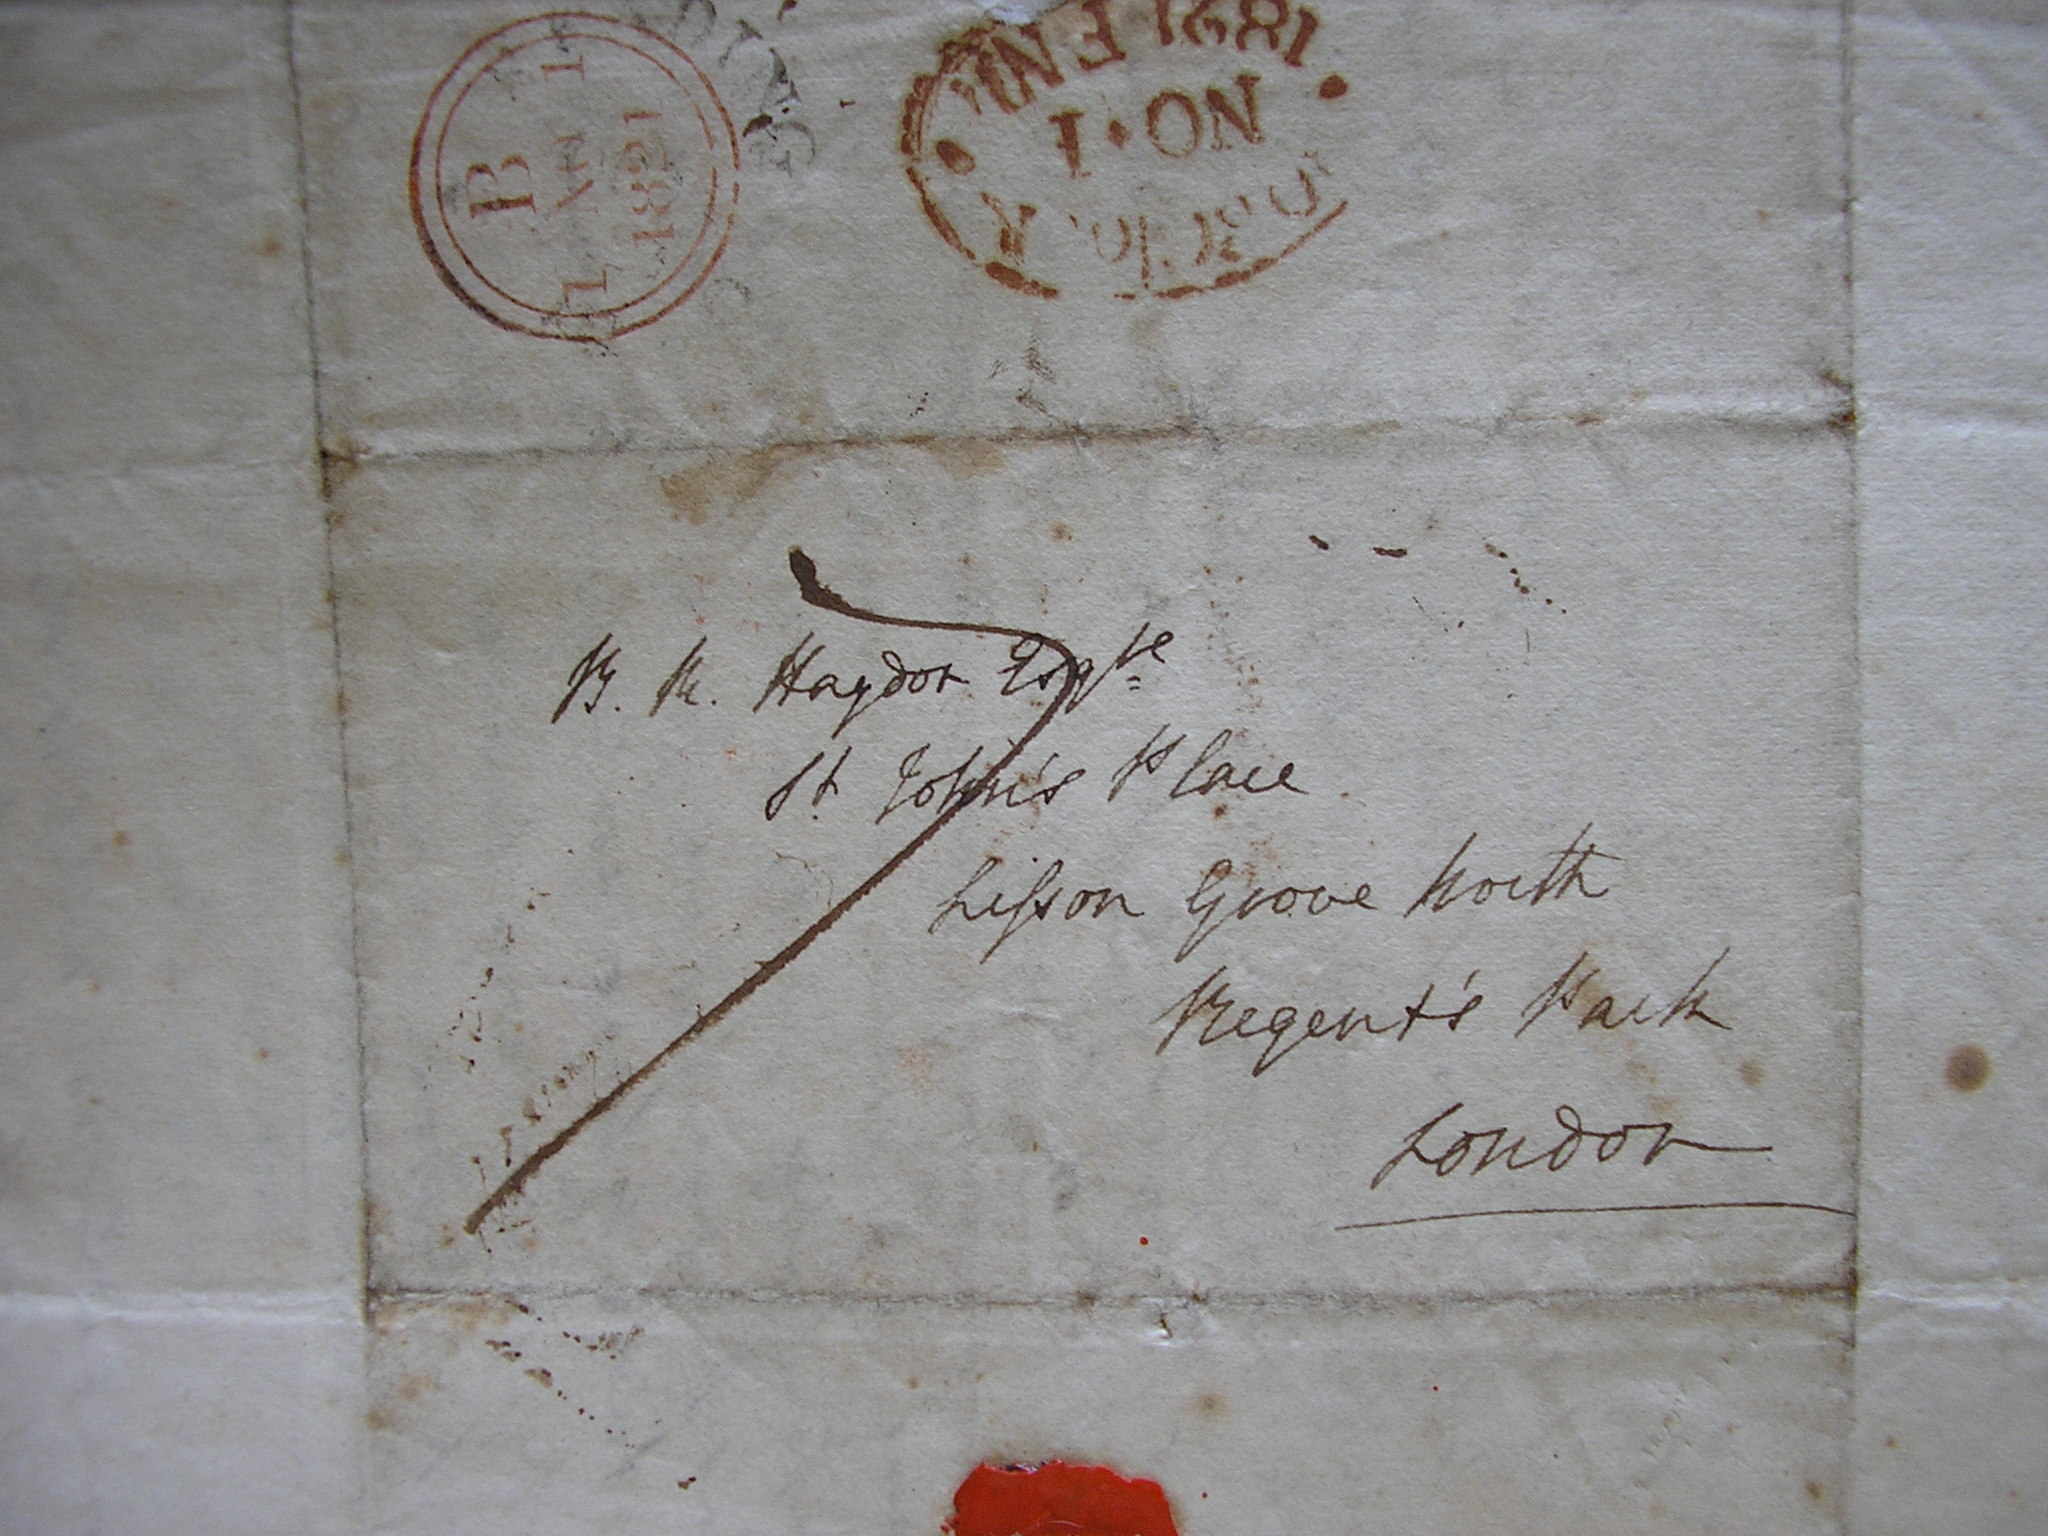 B
1821
1821
NO·1
B. R. Haydon Esqre
St. John's Place
Lisson Grove North
Regent's Park
London